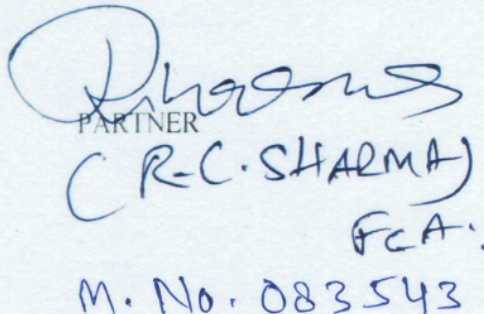 PARTNER
( R.C. SHARMA)
FCA.
M. No. 083543